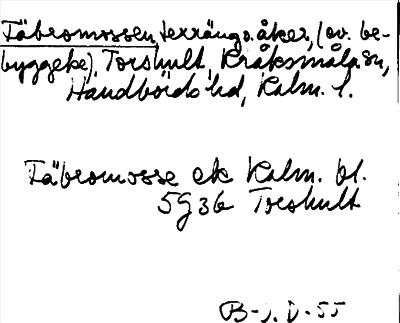 Täbromossen, terräng o. åker, (ov. be-
byggelse), Torshult, Kråksmåla sn,
Handbörds hd, Kalm. l.
Täbromosse ek Kalm. bl.
5G3b Torshult
B-J. D-55